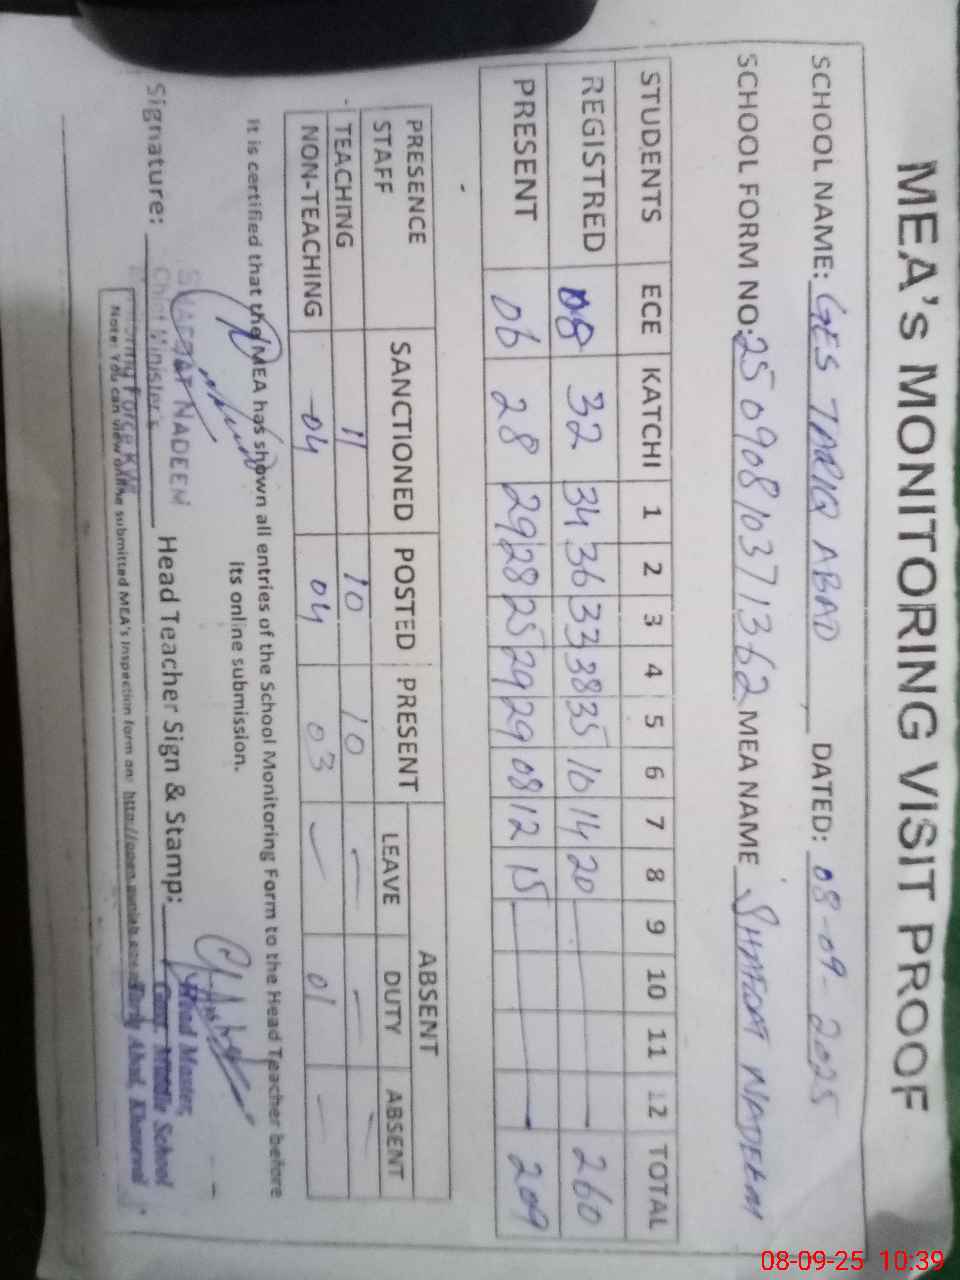 MEA's MONITORING VISIT PROOF
SCHOOL NAME: GES TARIQ ABAD DATED: 08-09-2025
SCHOOL FORM NO: 25090810371362 MEA NAME SHAFQAT NADEEM
STUDENTS ECE KATCHI 1 2 3 4 5 6 7 8 9 10 11 12 TOTAL
REGISTRED 08 32 34 36 33 38 35 10 14 20 260
PRESENT 06 28 29 28 25 29 29 08 12 15 209
PRESENCE STAFF SANCTIONED POSTED PRESENT ABSENT
LEAVE DUTY ABSENT
TEACHING 11 10 10 - - -
NON-TEACHING 04 04 03 - 01 -
It is certified that the MEA has shown all entries of the School Monitoring Form to the Head Teacher before
its online submission.
Signature: Head Teacher Sign & Stamp:
SHAFQAT NADEEM
Chief Minister's
Head Master,
Govt. Middle School
Tariq Abad, Khanewal
Note: You can view online submitted MEA's Inspection form on: http://open.punjab.gov
08-09-25 10:39